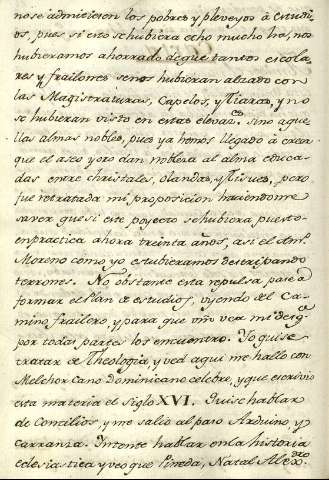 no se admitiesen los pobres y pleveyos à estudi
os, pues si esto se hubiera echo mucho ha, nos
hubieramos ahorrado de que tantos escola
res y frailones se nos hubieran alzado con
las Magistraturas, Capelos, y Tiaras, y no
se hubieran visto en estas elevaz.s sino aque
llas almas nobles, pues ya hemos llegado à creer
que el aseo y oro dan nobleza al alma educa
das entre christales, olandas, y Tisues, pero
fue retratada mi proposicion haciendome
saver que si este poyecto se hubiera puesto
en practica ahora treinta años, asi el
Moreno como yo estubieramos destripando
terrones. No obstante esta repulsa pase à
formar el Plan de estudios, viyendo del ca
mino frailero, y para que vm vea mi
por todas partes los encuentro. Yo quise
tratar de Theologia, y ved aqui me hallo con
Melchor Cano Dominicano celebre, y que escrivio
esta materia el Siglo XVI. Quise hablar
de Concilios, y me salio al paso Arduino, y
Carranza. Intente hablar en la historia
eclesiastica y veo que Pineda, Natal Alex.dro